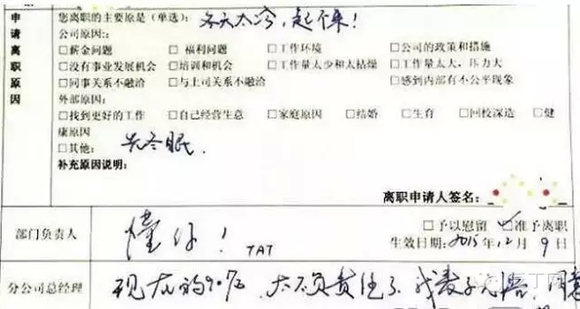 申请离职原因
您离职的主要原是(单选): 冬天太冷,起不来!
公司原因::
□薪金问题 □福利问题 □工作环境 □公司的政策和措施
□没有事业发展机会 □培训和机会 □工作量太少和太枯燥 □工作量太大,压力大
□同事关系不融洽 □与上司关系不融洽 □感到内部有不公平现象
外部原因:
□找到更好的工作 □自己经营生意 □家庭原因 □结婚 □生育 □回校深造 □健
康原因
□其他: 冬眠.
补充原因说明:
离职申请人签名:
部门负责人
懂你! TAT
□予以慰留 □准予离职
生效日期: 2015.12月9日
分公司总经理
现在的90后,太不负责任了,我